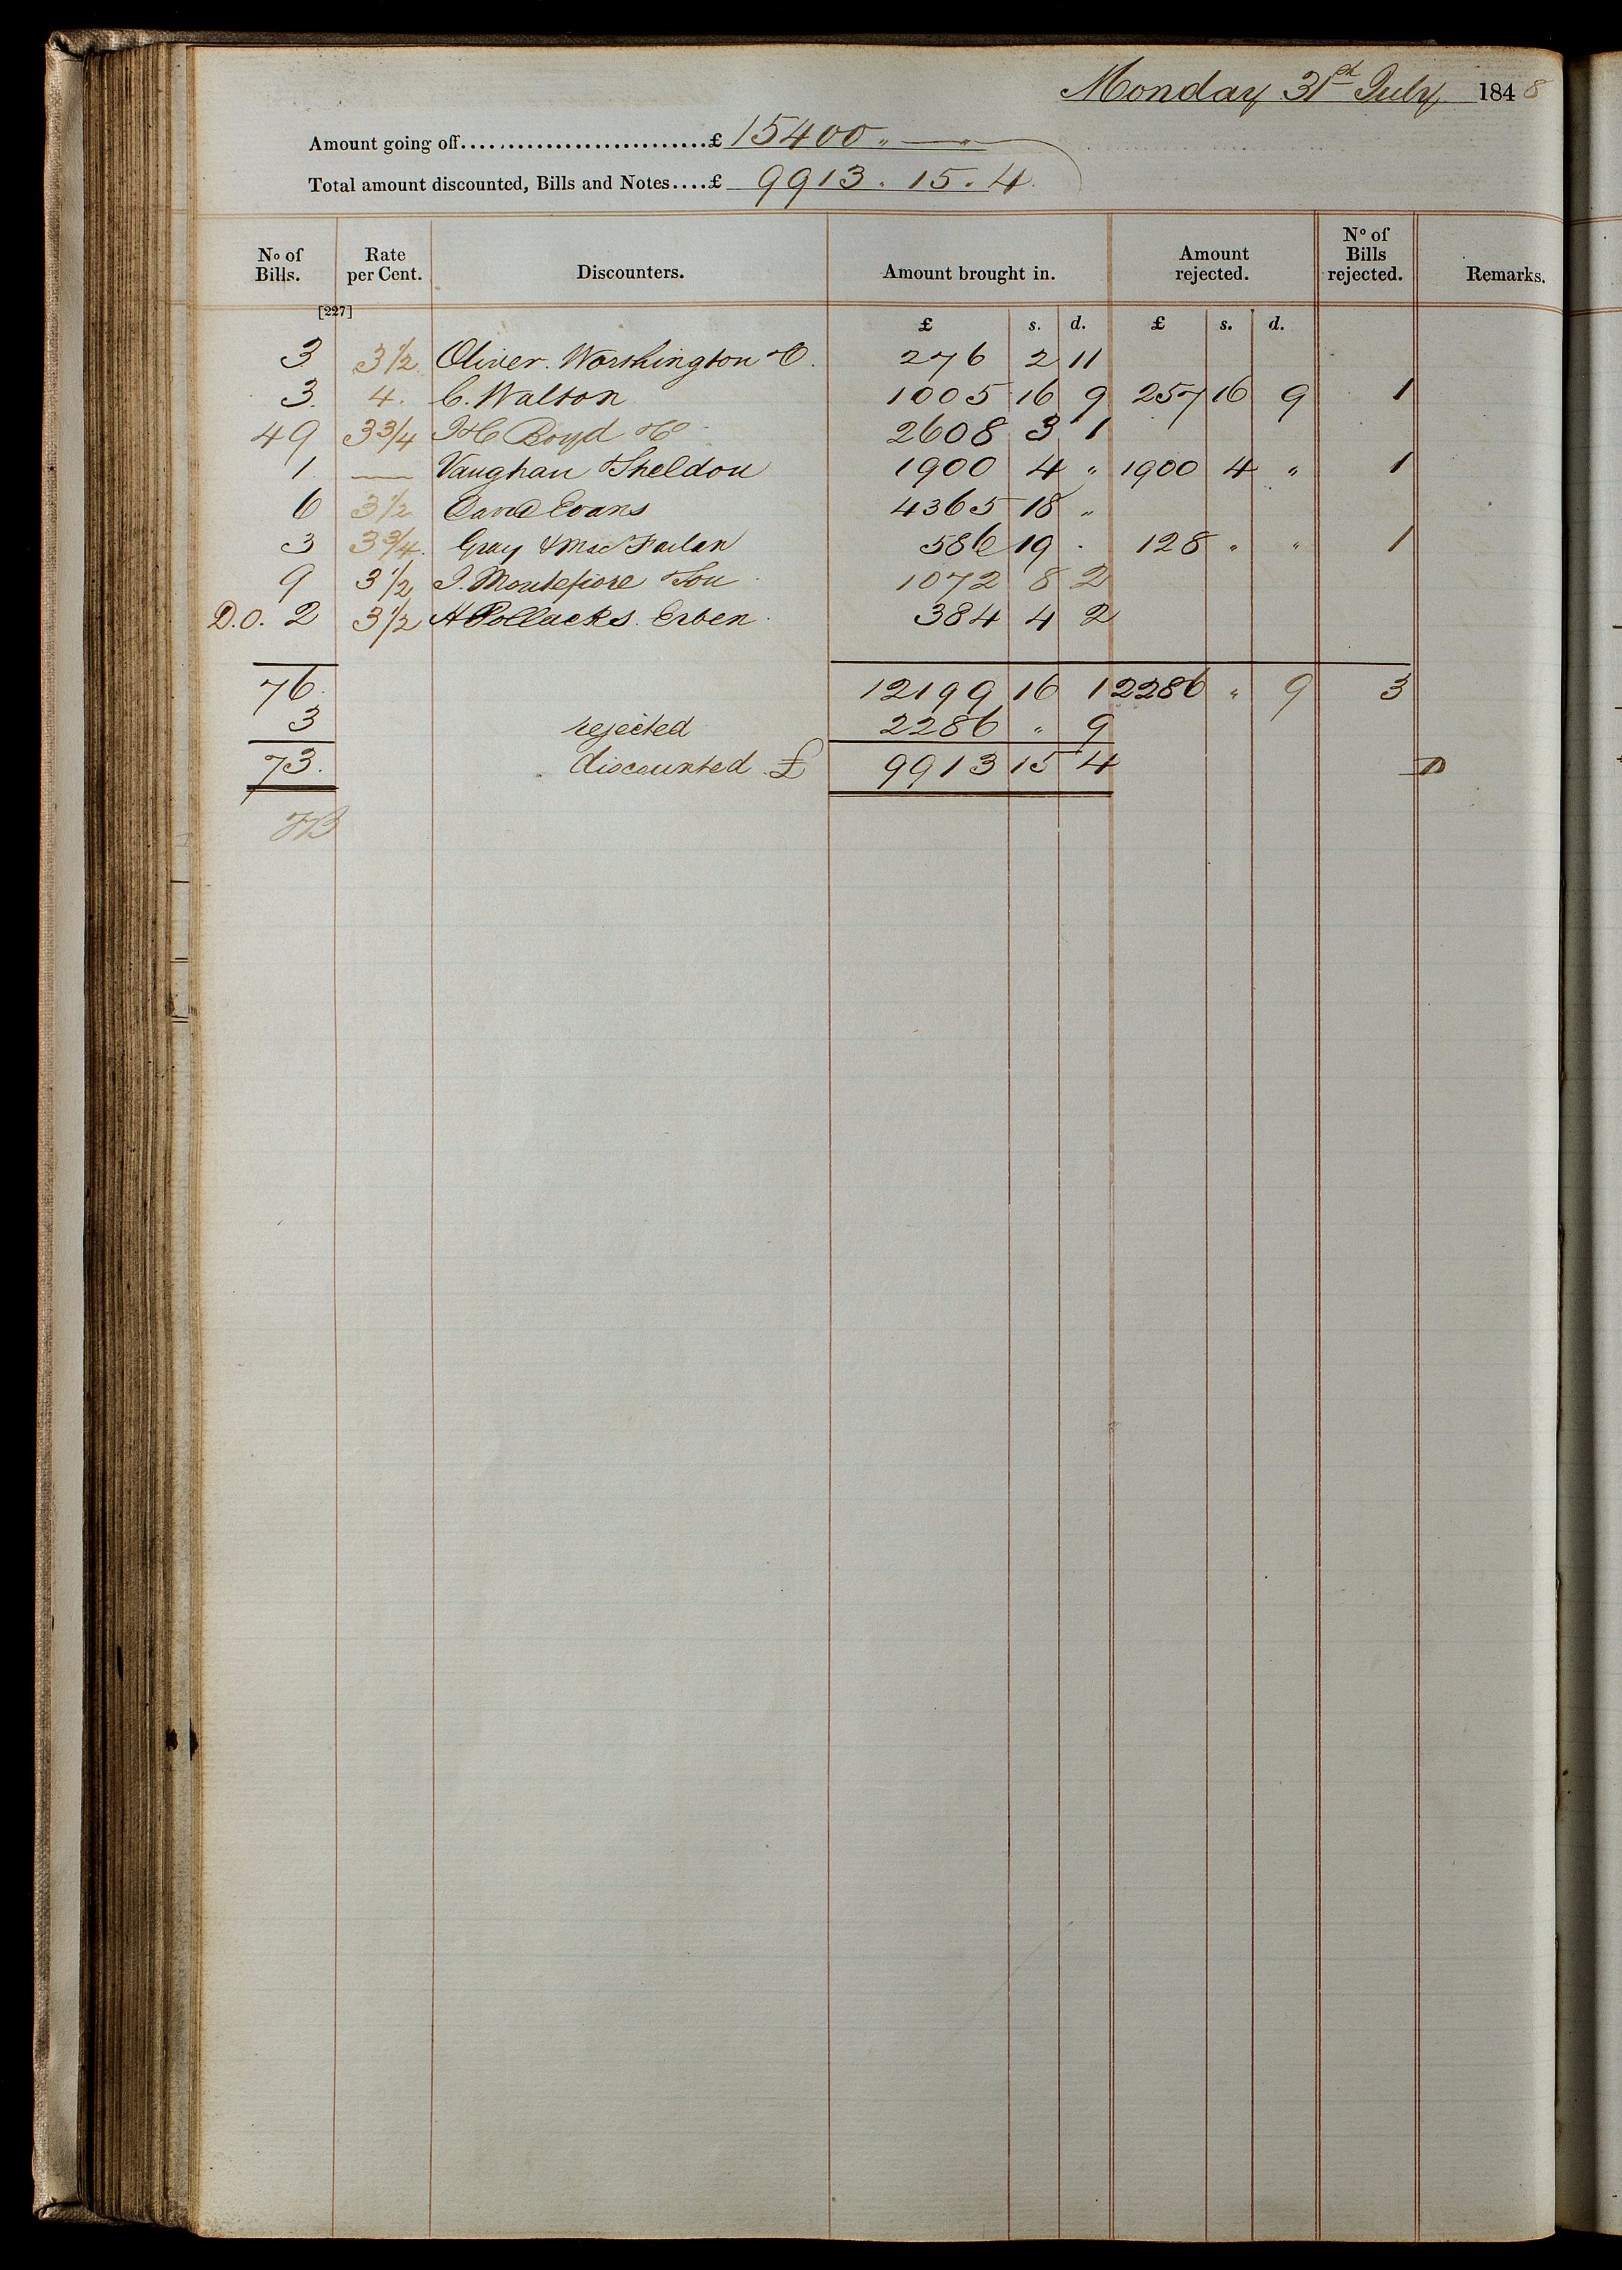 Monday 31st July 1848
Amount going off..........................£ 15400 " — "
Total amount discounted, Bills and Notes....£ 9913 . 15 . 4
No of Bills. Rate per Cent. Discounters. Amount brought in. Amount rejected. No of Bills rejected. Remarks.
[227]
£ s. d. £ s. d.
3 3 1/2 Oliver. Worthington & Co. 276 2 11
3. 4. C. Walton 1005 16 9 257 16 9 1
49 3 3/4 Boyd & Co 2608 3 1
1 — Vaughan & Sheldon 1900 4 " 1900 4 " 1
6 3 1/2 David Evans 4365 18 "
3 3 3/4. Gray & MacFarlan 586 19 . 128 " " 1
9 3 1/2 J. Montefiore & Son 1072 8 2
D.O. 2 3 1/2 A Pollacks. Erben 384 4 2
76. 12199 16 1 2286 " 9 3
3 rejected 2286 " 9
73. discounted £ 9913 15 4